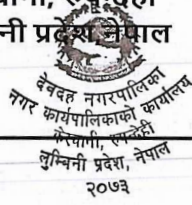 नी प्रदेश, नेपाल
देवदह नगरपालिका
नगर कार्यपालिकाको कार्यालय
लुम्बिनी प्रदेश, नेपाल
२०७३